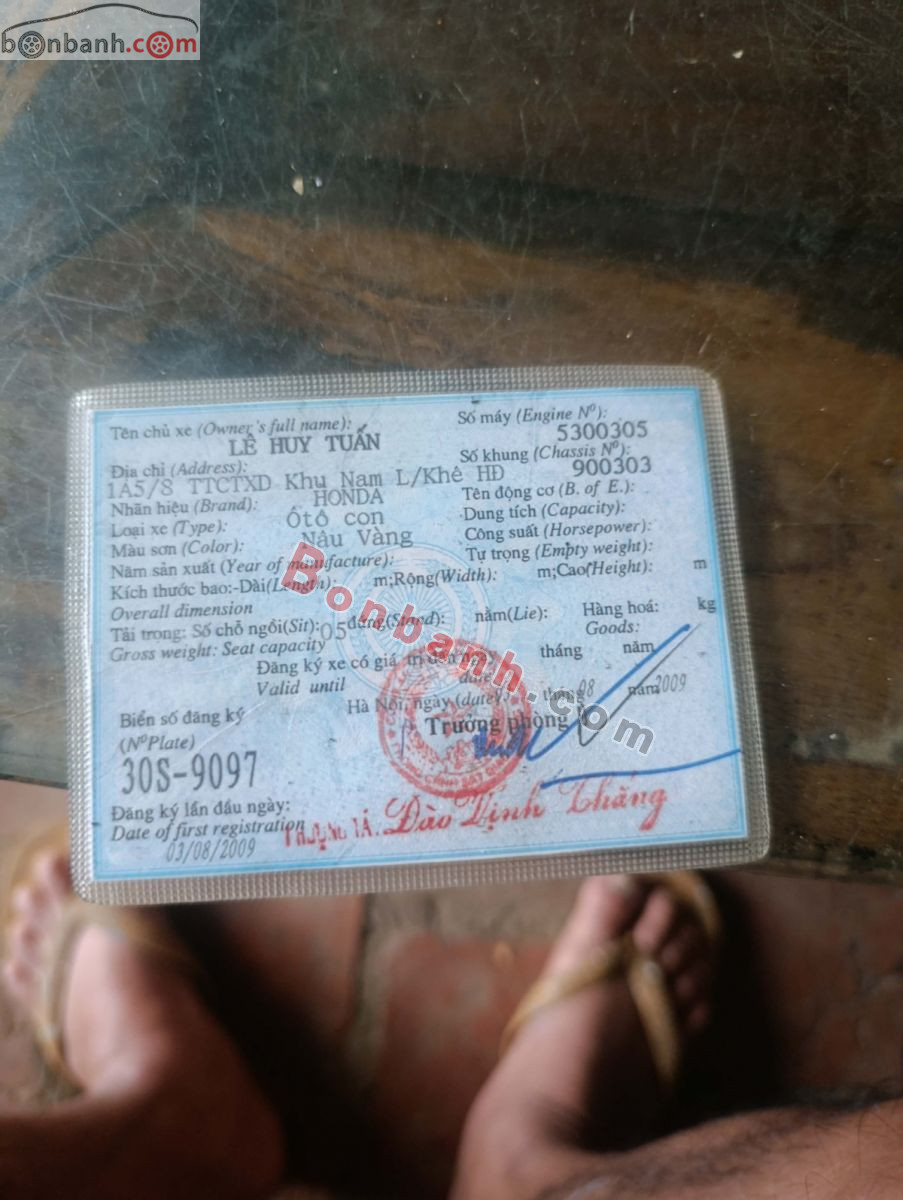 bonbanh.com
Tên chủ xe (Owner's full name):
LÊ HUY TUẤN
Địa chỉ (Address):
1A5/8 TTCTXD Khu Nam L/Khê HĐ
Nhãn hiệu (Brand): HONDA
Loại xe (Type): Ôtô con
Màu sơn (Color): Nâu Vàng
Năm sản xuất (Year of manufacture):
Kích thước bao:-Dài(Length): m;Rộng(Width): m;Cao(Height): m
Overall dimension
Số máy (Engine Nº):
5300305
Số khung (Chassis Nº):
900303
Tên động cơ (B. of E.):
Dung tích (Capacity):
Công suất (Horsepower):
Tự trọng (Empty weight):
Tải trọng: Số chỗ ngồi(Sit): 05 đứng(Stand): nằm(Lie): Hàng hoá: kg
Gross weight: Seat capacity Goods:
Đăng ký xe có giá trị đến ngày tháng năm
Valid until date
Hà Nội, ngày (date) tháng 08 năm 2009
Trưởng phòng
Biển số đăng ký
(NºPlate)
30S-9097
Đăng ký lần đầu ngày:
Date of first registration
03/08/2009
Đào Vịnh Thắng
Bonbanh.com